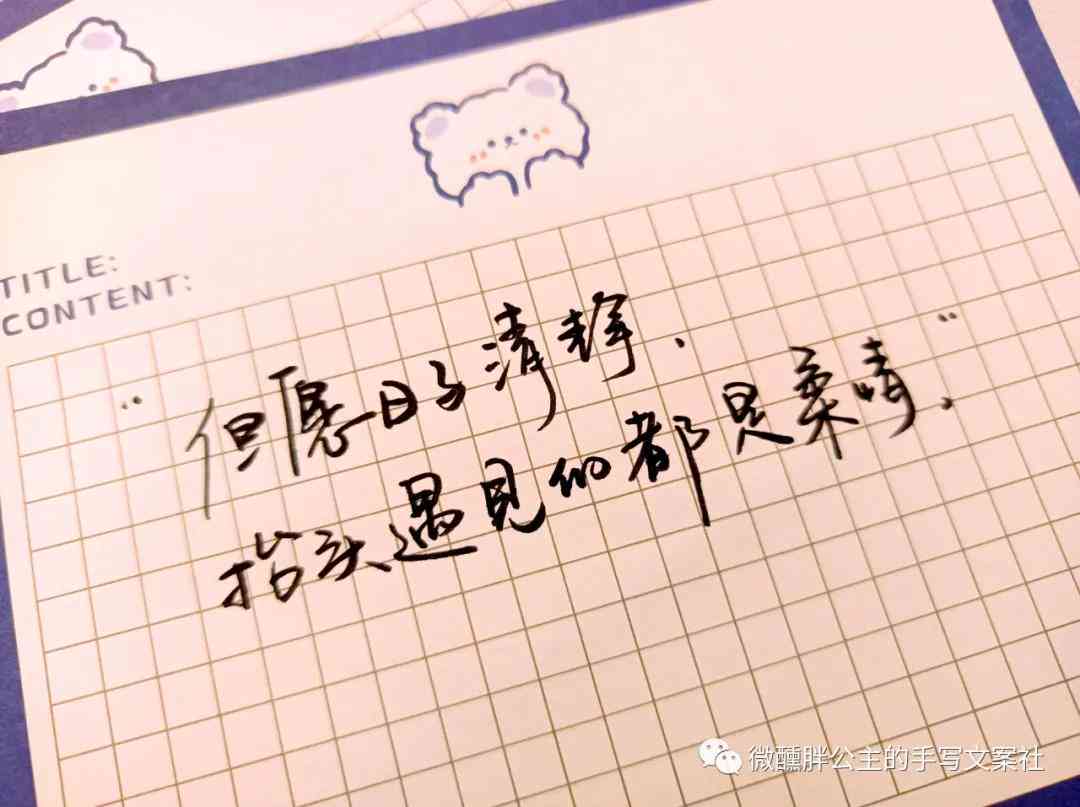 TITLE:
CONTENT:
“但愿日子清静、
抬头遇见的都是柔情、”
微醺胖公主的手写文案社